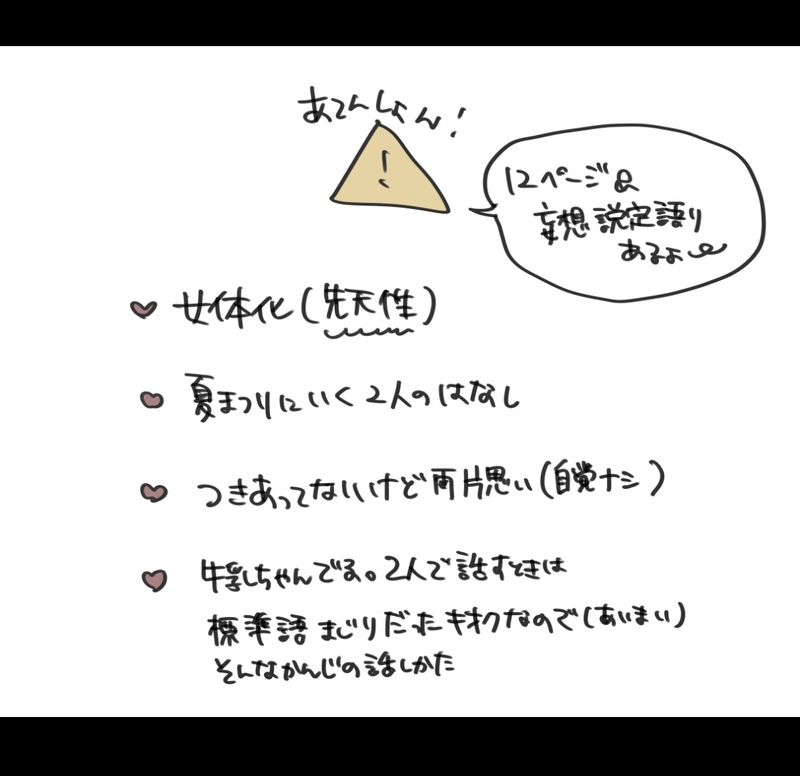 あてんしょん!
!
12ページ&
妄想説定語り
あるよ
女体化(先天性)
夏まつりにいく2人のはなし
つきあってないけど両片思い(自覚ナシ)
牛乳ちゃんでる。2人で話すときは
標準語まじりだったキオクなので(あいまい)
そんなかんじの話しかた